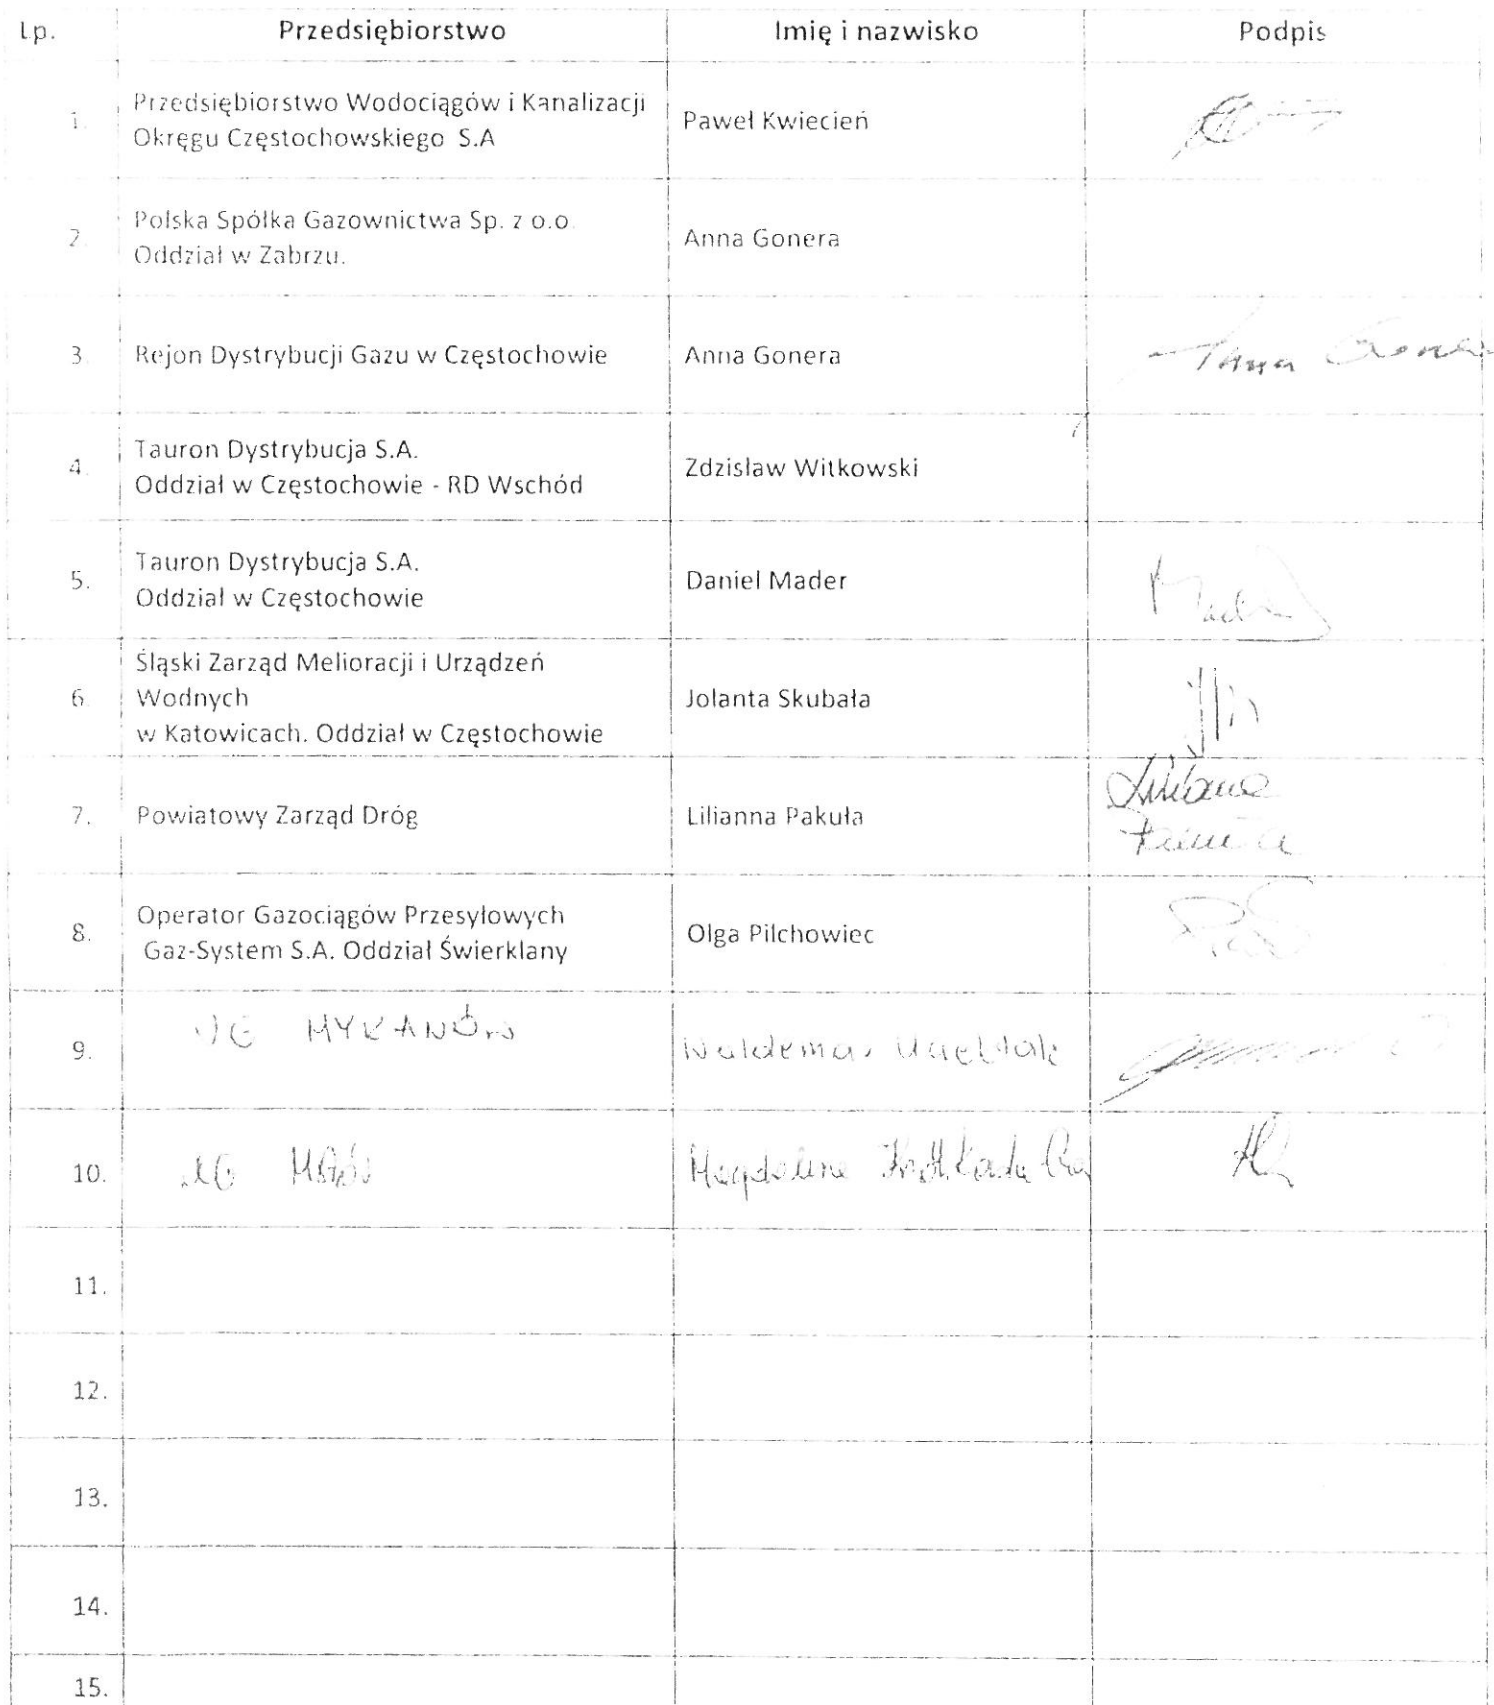 Lp. Przedsiębiorstwo Imię i nazwisko Podpis
1. Przedsiębiorstwo Wodociągów i Kanalizacji
Okręgu Częstochowskiego S.A Paweł Kwiecień
2. Polska Spółka Gazownictwa Sp. z o.o.
Oddział w Zabrzu. Anna Gonera
3. Rejon Dystrybucji Gazu w Częstochowie Anna Gonera Anna Gonera
4. Tauron Dystrybucja S.A.
Oddział w Częstochowie - RD Wschód Zdzisław Witkowski
5. Tauron Dystrybucja S.A.
Oddział w Częstochowie Daniel Mader Mader
6. Śląski Zarząd Melioracji i Urządzeń
Wodnych
w Katowicach. Oddział w Częstochowie Jolanta Skubała
7. Powiatowy Zarząd Dróg Lilianna Pakuła Lilianna
Pakuła
8. Operator Gazociągów Przesyłowych
Gaz-System S.A. Oddział Świerklany Olga Pilchowiec
9. UG MYKANÓW Waldemar
10. UG Magdalena
11.
12.
13.
14.
15.